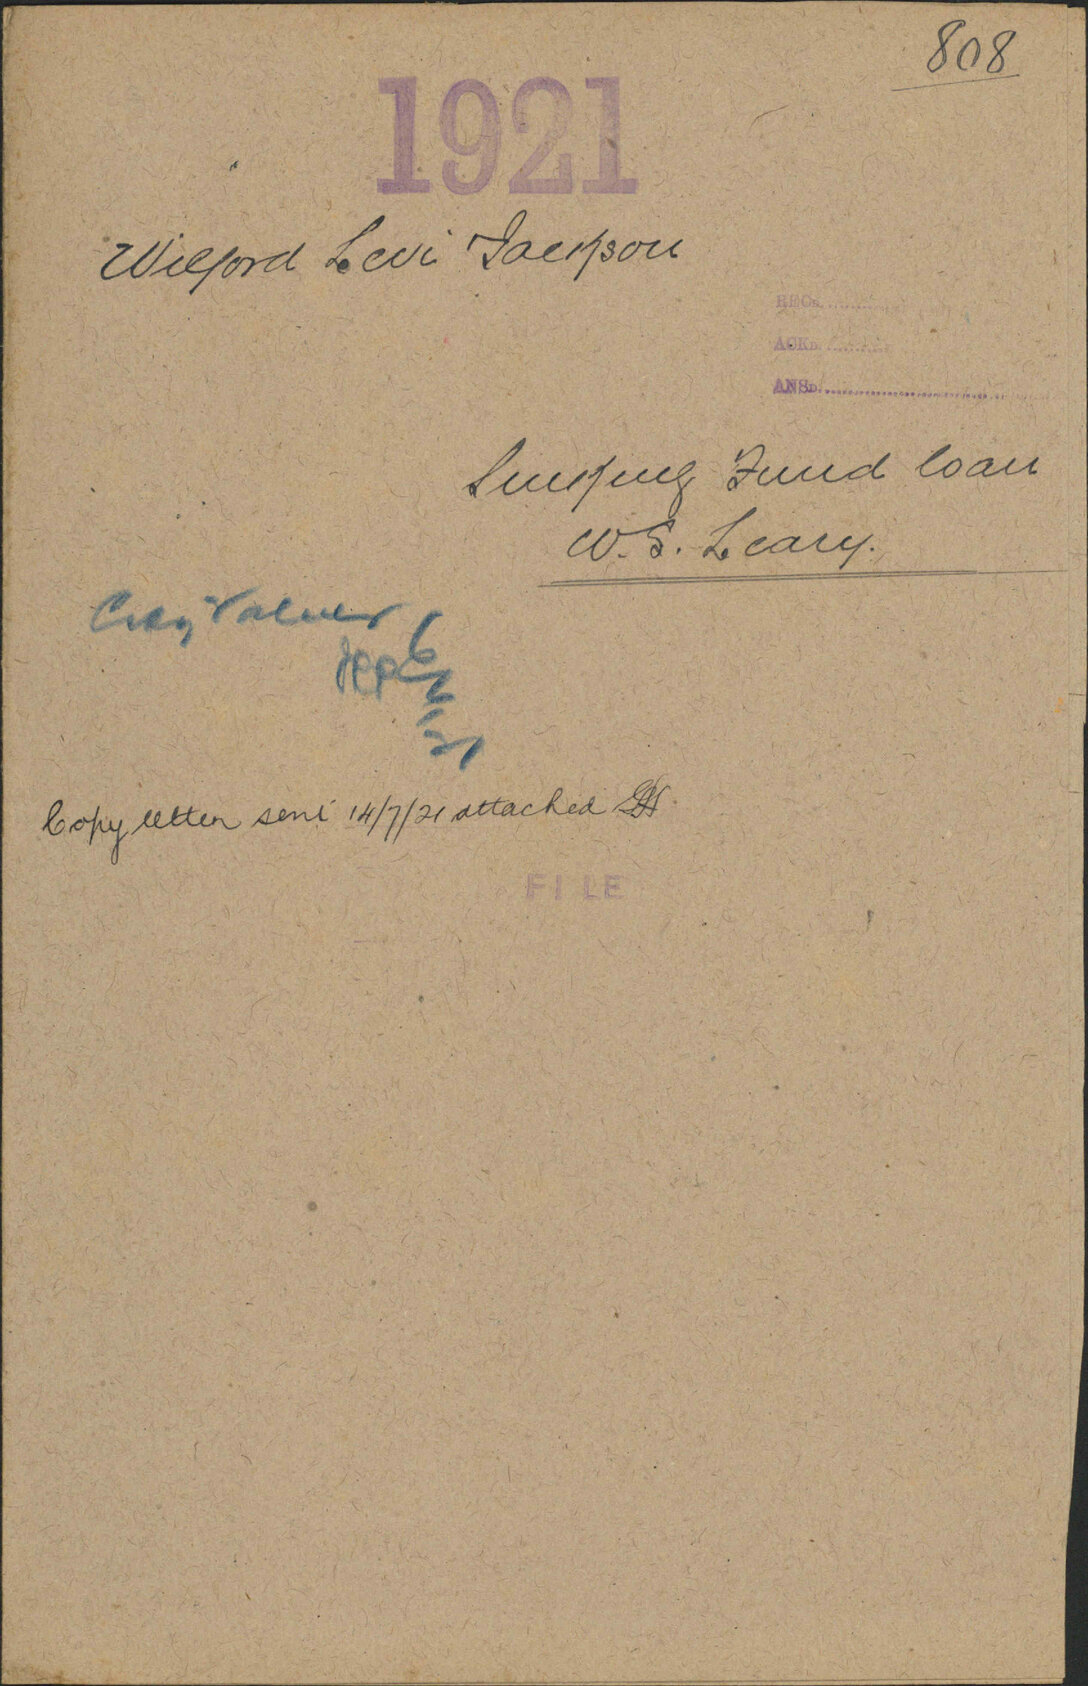 808
1921
Wilford Levi Jackson
RECD.
ACKD.
ANSD.
Sinking Fund loan
W. S. Leary.
City Valuer 6
21
Copy letter sent 14/7/21 attached
FILE